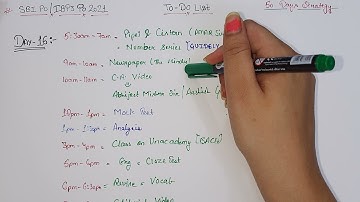 SBI PO / IBPS PO 2021 To-Do List 50 Days Strategy
Day-16:- 5:30am-7am = Pipe & Cistern (AMAR Sir
+ Number Series [GUIDELY
9am = Newspaper (The Hindu)
10am-11am = C.A. Video
Abhijeet Mishra Sir / Aashish G
12pm-1pm = Mock Test
1pm-1:30pm = Analysis
3pm-4pm = Class on Unacademy
5pm-6pm = Eng = Cloze Test
6pm-6:30pm = Revise = Vocab =
Editorial Video